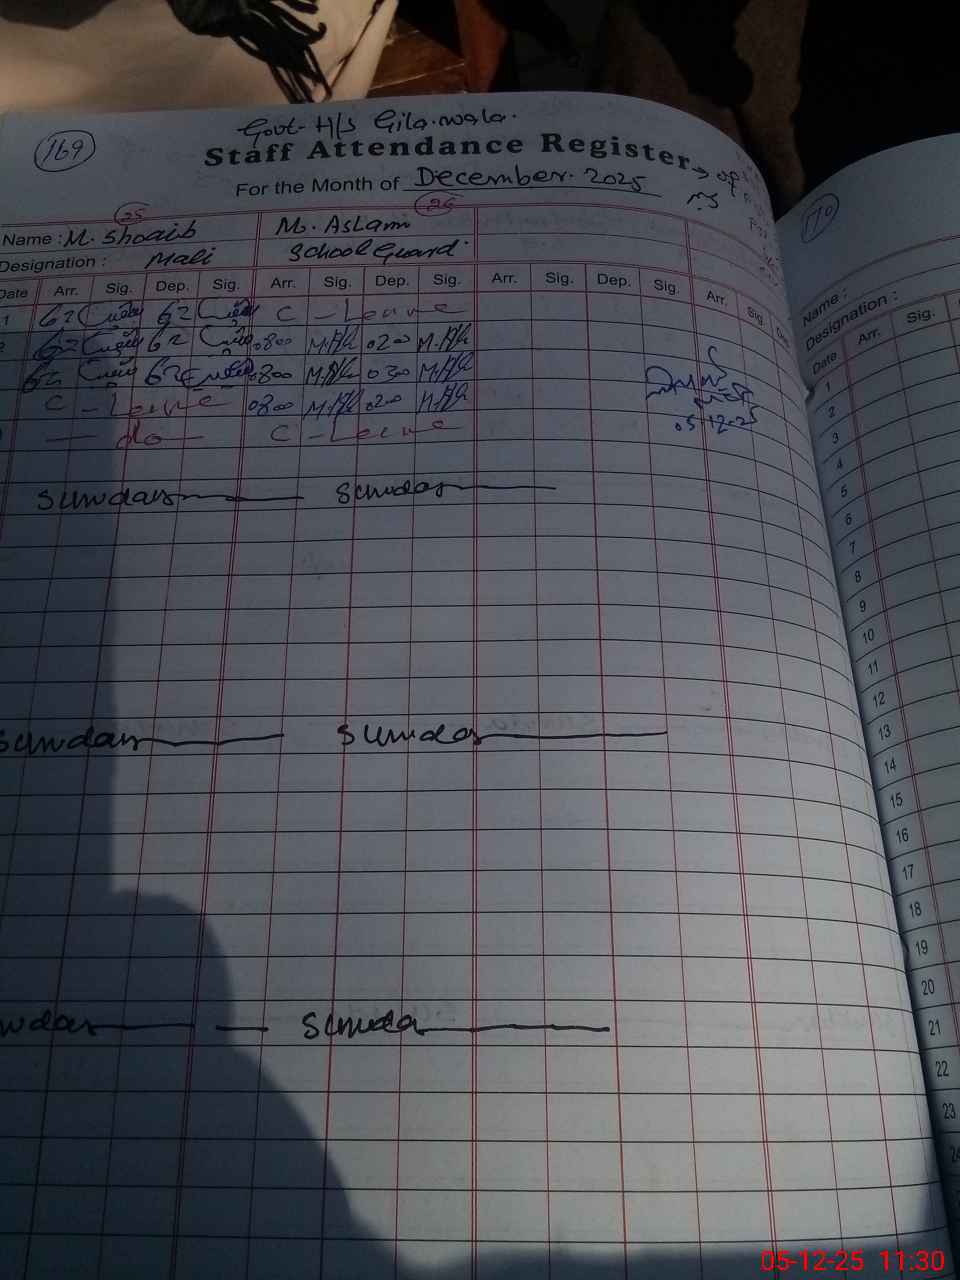 169
Govt- H/S Gila.wala.
Staff Attendance Register
For the Month of December. 2025
25 26
Name : M. Shoaib M. Aslam
Designation : Mali School Guard
Date Arr. Sig. Dep. Sig. Arr. Sig. Dep. Sig. Arr. Sig. Dep. Sig. Arr. Sig. De
1 C - Leave
0800 0200
0800 0300
C - Leave 0800 0200
— do — C - Leave
05-12-25
Sunday Sunday
Sunday Sunday
nday Sunda
170
Name :
Designation :
Date Arr. Sig.
1
2
3
4
5
6
7
8
9
10
11
12
13
14
15
16
17
18
19
20
21
22
23
24
05-12-25 11:30